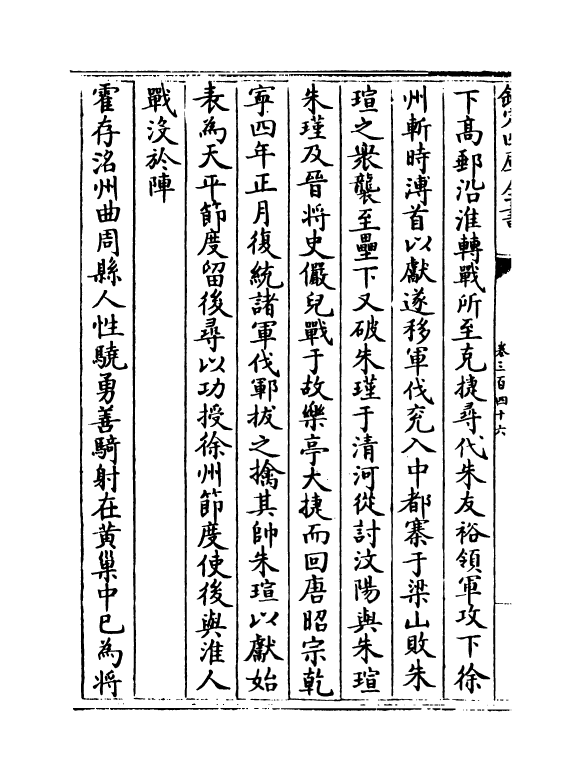 欽定四庫全書
卷三百四十六
下高郵沿淮轉戰所至克捷尋代朱友裕領軍攻下徐
州斬時溥首以獻遂移軍伐兖入中都寨于梁山敗朱
瑄之衆襲至壘下又破朱瑾于清河從討汶陽與朱瑄
朱瑾及晉將史儼兒戰于故樂亭大捷而回唐昭宗乾
寧四年正月復統諸軍伐鄆拔之擒其帥朱瑄以獻始
表為天平節度留後尋以功授徐州節度使後與淮人
戰沒於陣
霍存洺州曲周縣人性驍勇善騎射在黄巢中已為將